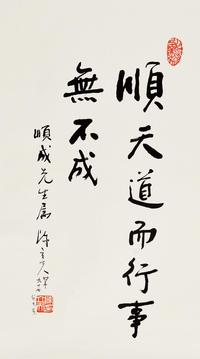 順天道而行事
無不成
順成先生屬